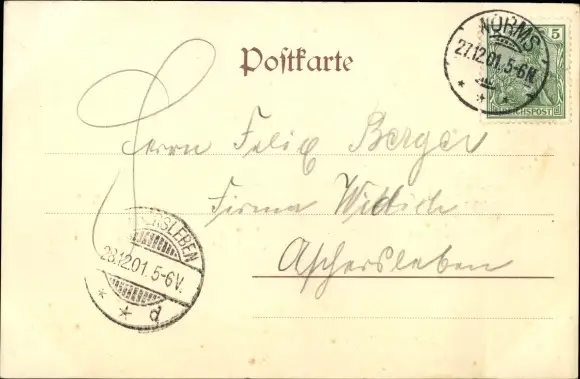 Postkarte
WORMS
27.12.01.5-6N.
5
REICHSPOST
Herrn Felix Berger
Firma Wittich
Aschersleben
ASCHERSLEBEN
28.12.01.5-6V.
* * d